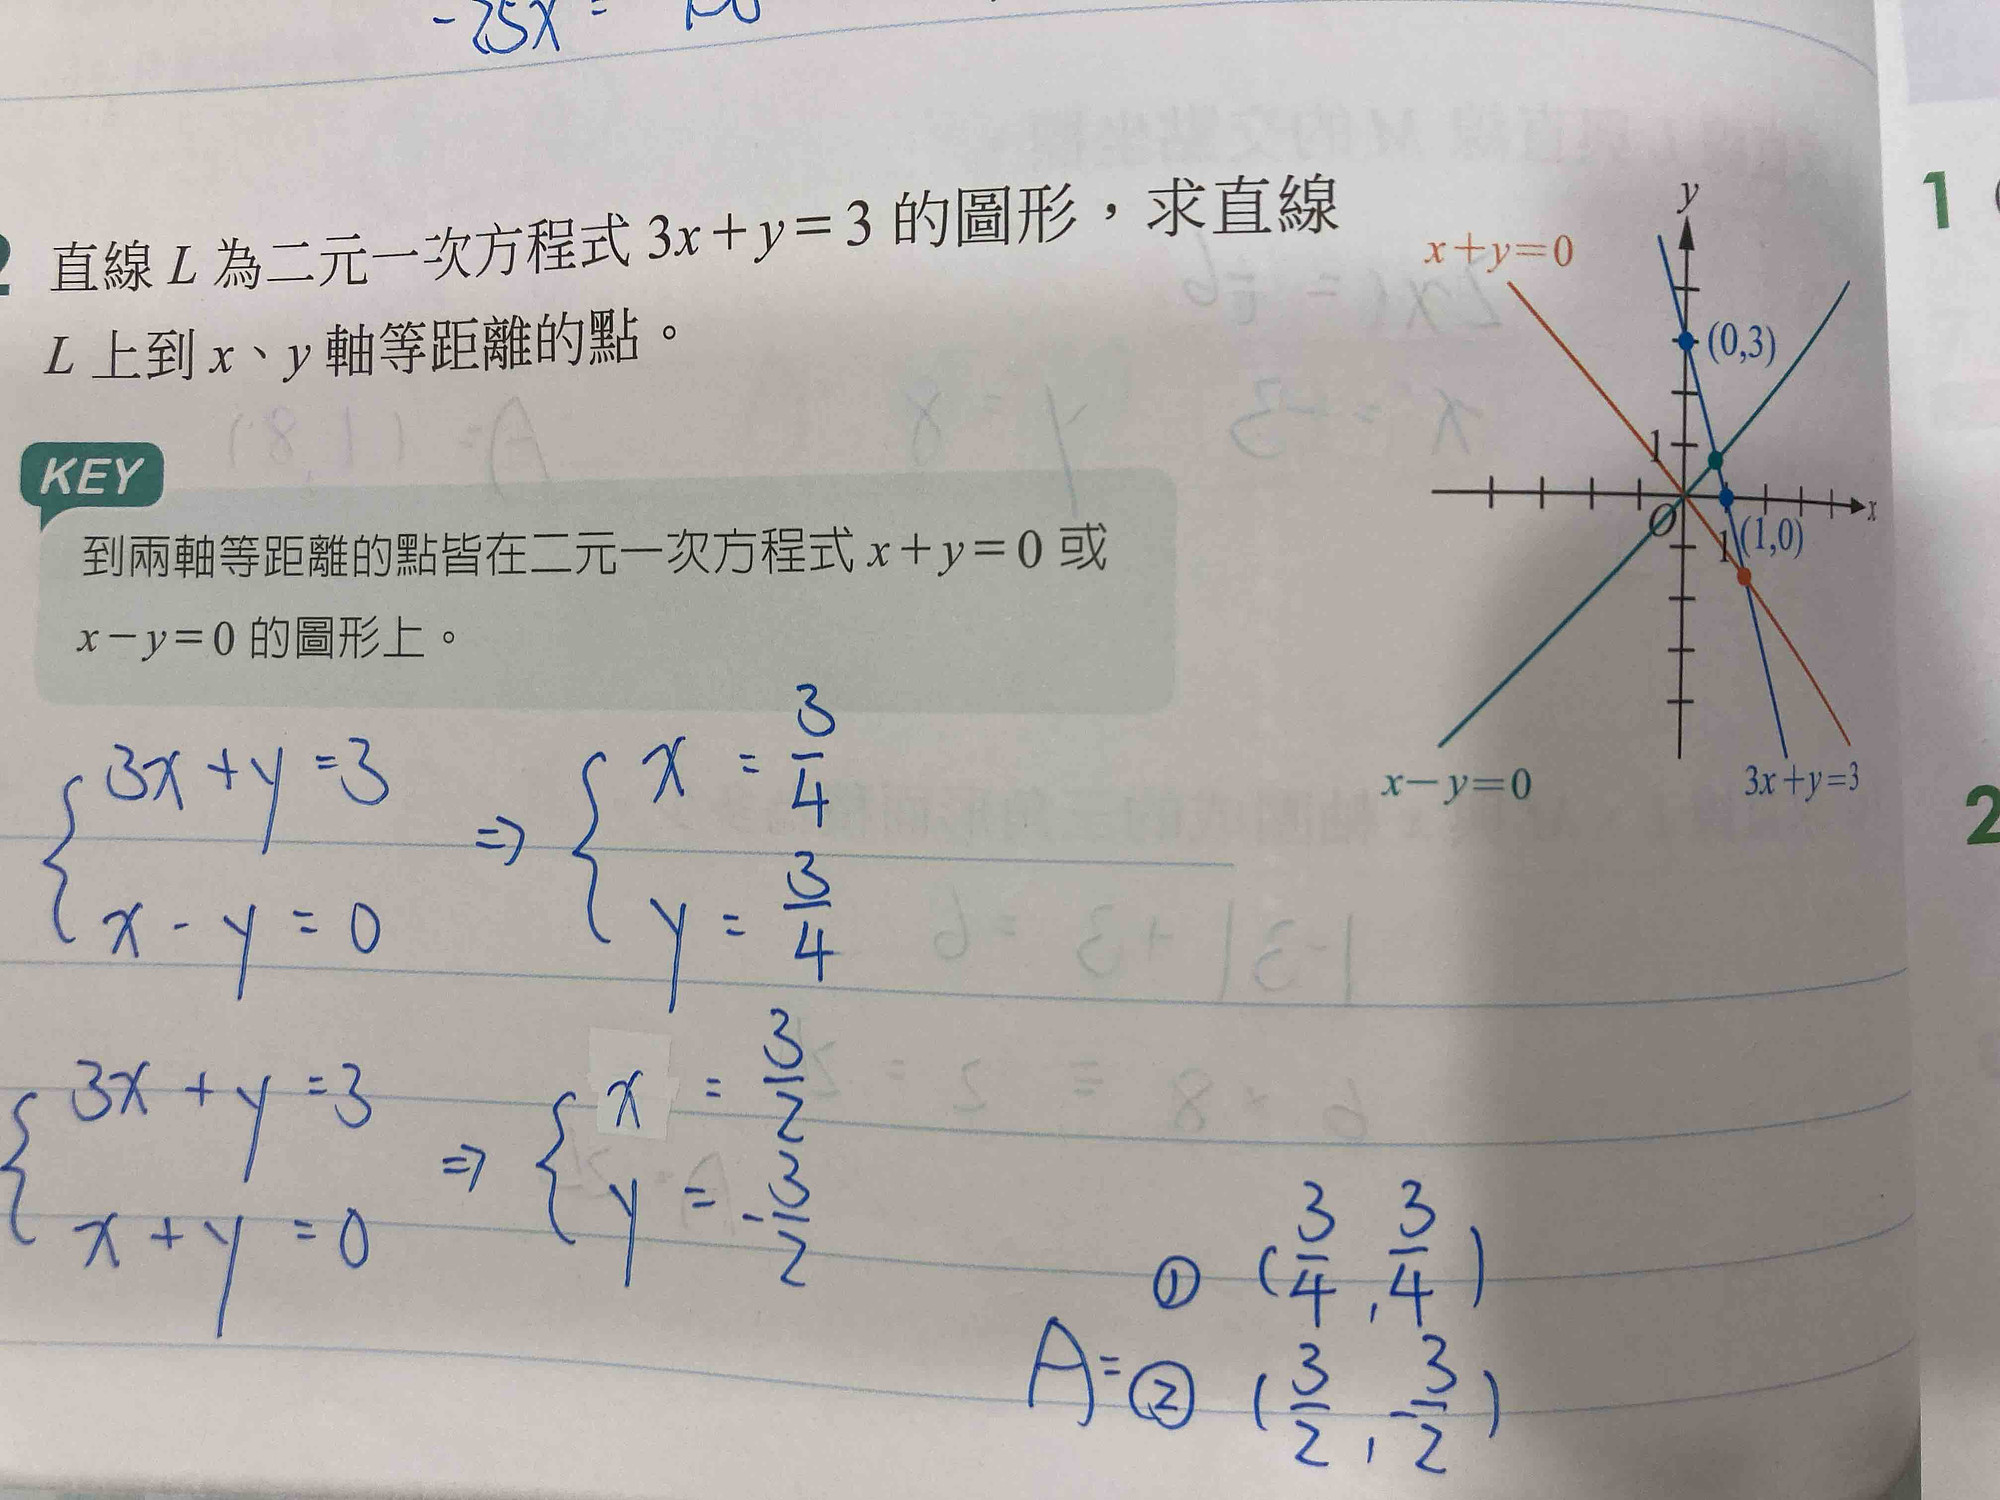 -25x =
2 直線 L 為二元一次方程式 3x+y=3 的圖形，求直線
L 上到 x、y 軸等距離的點。
KEY
到兩軸等距離的點皆在二元一次方程式 x+y=0 或
x-y=0 的圖形上。
y
x+y=0
(0,3)
1
x
O
1
(1,0)
x-y=0
3x+y=3
{ 3x+y=3 ⇒ { x = 3/4
x-y=0 y = 3/4
{ 3x+y=3 ⇒ { x = 3/2
x+y=0 y = -3/2
A= ① (3/4, 3/4)
② (3/2, -3/2)
1
2